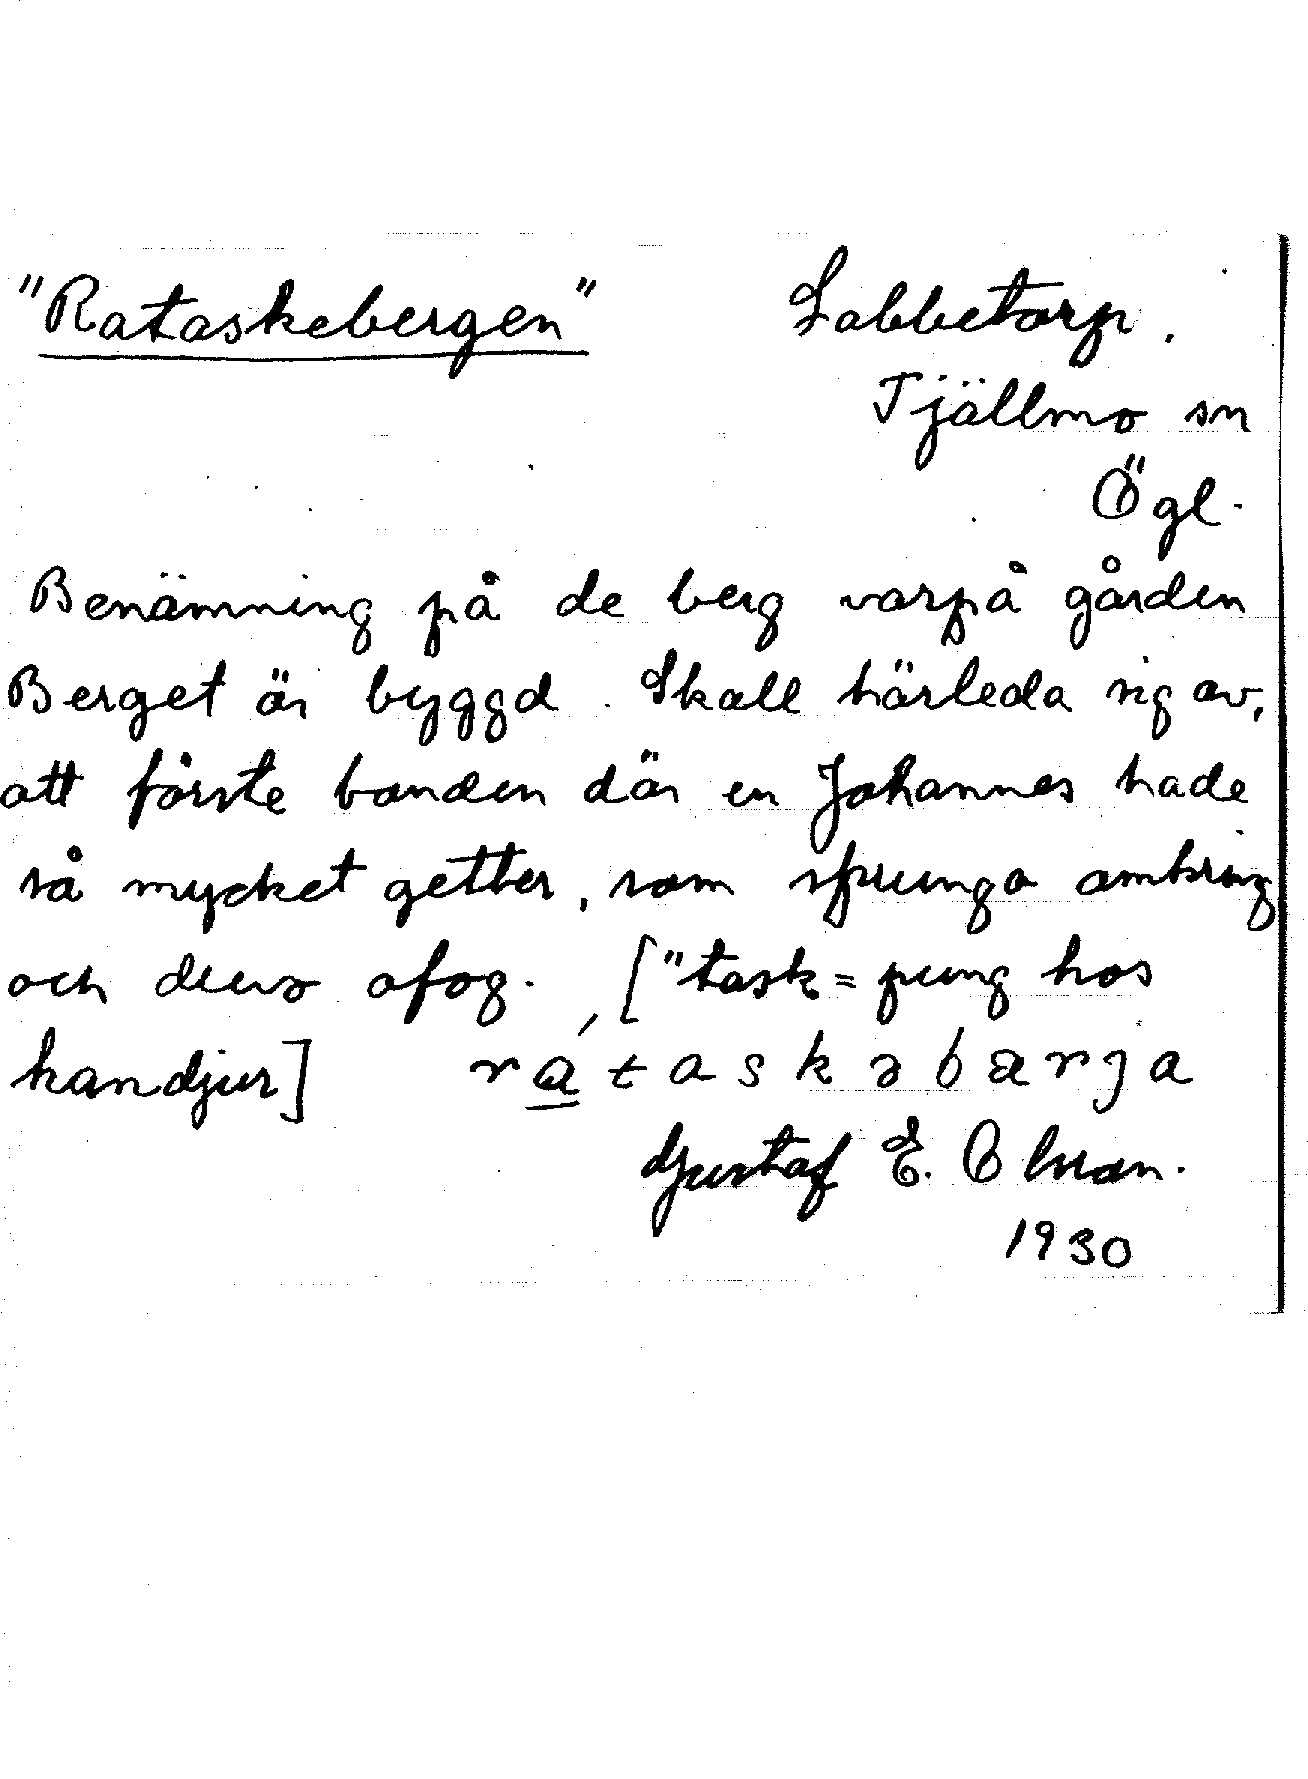 "Rataskebergen"
Labbetorp.
Tjällmo sn
Ögl.
Benämning på de berg varpå gården
Berget är byggd. Skall härleda sig av,
att förste bonden där en Johannes hade
så mycket getter, som sprungo omkring
och drevo ofog. ["task = pung hos
handjur] rátaskəbærja
Gustaf E. Olsson.
1930